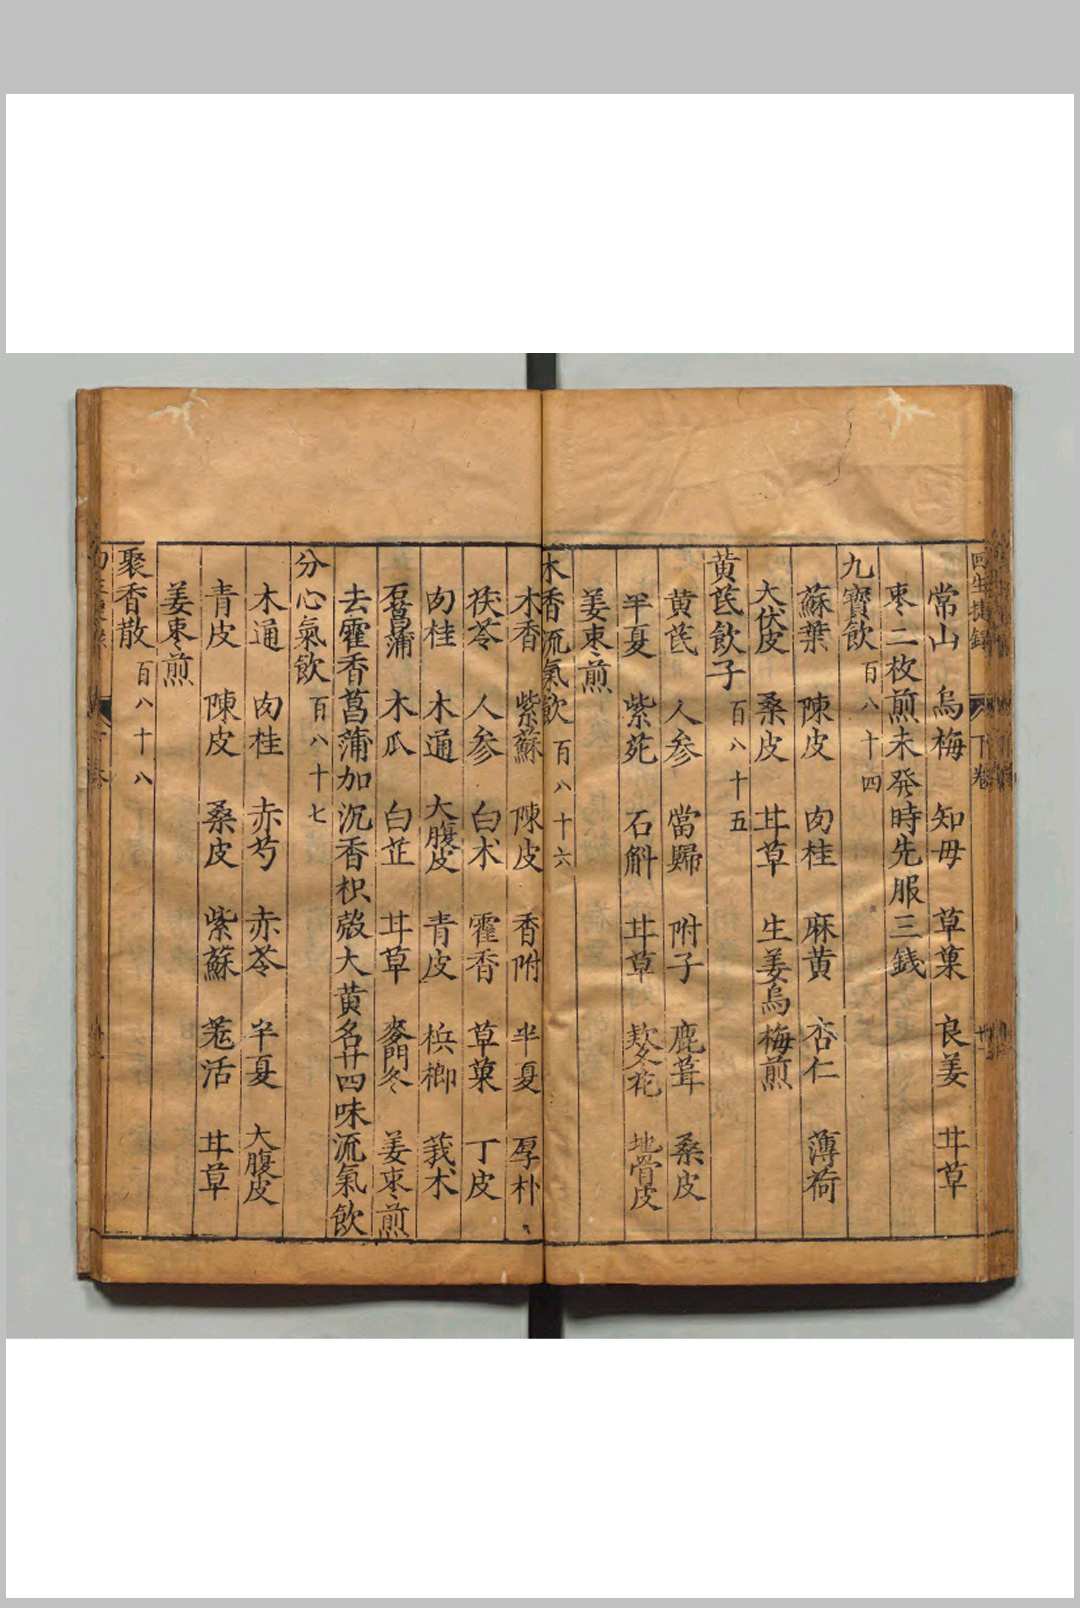 回生捷錄 下卷
常山 烏梅 知母 草菓 良姜 甘草
枣二枚煎未発時先服三錢
九寶飲 百八十四
蘇葉 陳皮 肉桂 麻黄 杏仁 薄荷
大伏皮 桑皮 甘草 生姜烏梅煎
黄茋飲子 百八十五
黄茋 人参 當歸 附子 鹿茸 桑皮
半夏 紫苑 石斛 甘草 欵冬花 地骨皮
姜枣煎
木香流氣飲 百八十六
木香 紫蘇 陳皮 香附 半夏 厚朴
茯苓 人参 白术 霍香 草菓 丁皮
肉桂 木通 大腹皮 青皮 梹榔 莪术
石菖蒲 木瓜 白芷 甘草 麥門冬 姜枣煎
去霍香菖蒲加沉香枳殼大黄名廿四味流氣飲
分心氣飲 百八十七
木通 肉桂 赤芍 赤苓 半夏 大腹皮
青皮 陳皮 桑皮 紫蘇 羌活 甘草
姜枣煎
聚香散 百八十八